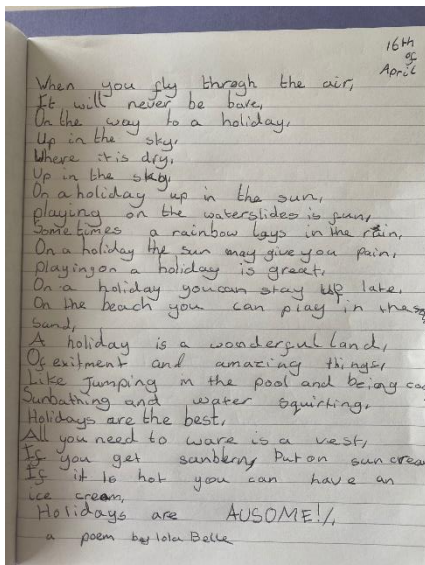 16th
of
April
When you fly throgh the air,
It will never be bare,
On the way to a holiday,
Up in the sky,
Where it is dry,
Up in the sky,
On a holiday up in the sun,
playing on the waterslides is fun,
Sometimes a rainbow lays in the rain,
On a holiday the sun may give you pain,
playing on a holiday is great,
On a holiday you can stay up late,
On the beach you can play in the
sand,
A holiday is a wonderful land,
Of exitment and amazing things,
Like Jumping in the pool and being
Sunbathing and water squirting,
Holidays are the best,
All you need to ware is a vest,
If you get put on sun crea
If it to hot you can have an
ice cream,
Holidays are AUSOME!
a poem by lola Belle